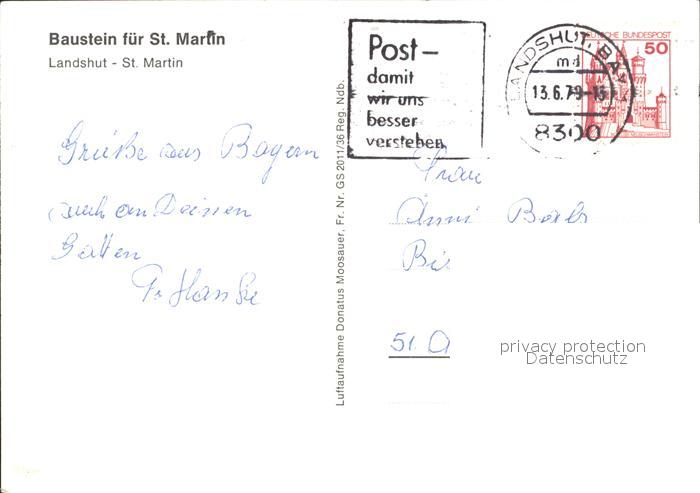 Baustein für St. Martin
Landshut - St. Martin
Grüße aus Bayern
auch an Deinen
Gatten
Fr. Hanske
Luftaufnahme Donatus Moosauer, Fr. Nr. GS 2011/36 Reg. Ndb.
Post-
damit
wir uns
besser
verstehen
LANDSHUT, BAY
md
13.6.79-16
8300
DEUTSCHE BUNDESPOST
50
Frau
Anni
51
privacy protection
Datenschutz